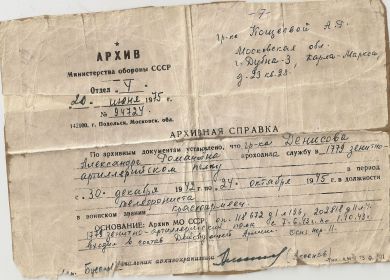 - 7 -
АРХИВ
Министерства обороны СССР
Отдел V
20 июня 1975 г.
№ 94724
142100, г. Подольск, Московск. обл.
гр-ке Кощеевой А.Р.
Московская обл.
г. Дубна-3, Карла-Маркса
д-23 кв. 28.
АРХИВНАЯ СПРАВКА
По архивным документам установлено, что гр-ка Денисова
Александра Романовна проходила службу в 1779 зенитно-
артиллерийском полку в период
с 30 декабря 1942 г. по 24 октября 1945 г. в должности
телефониста
в воинском звании красноармеец.
ОСНОВАНИЕ: Архив МО СССР, оп.
1779 зенитно-артиллерийский полк
входил в состав Действующей Армии.
Начальник архивохранилища